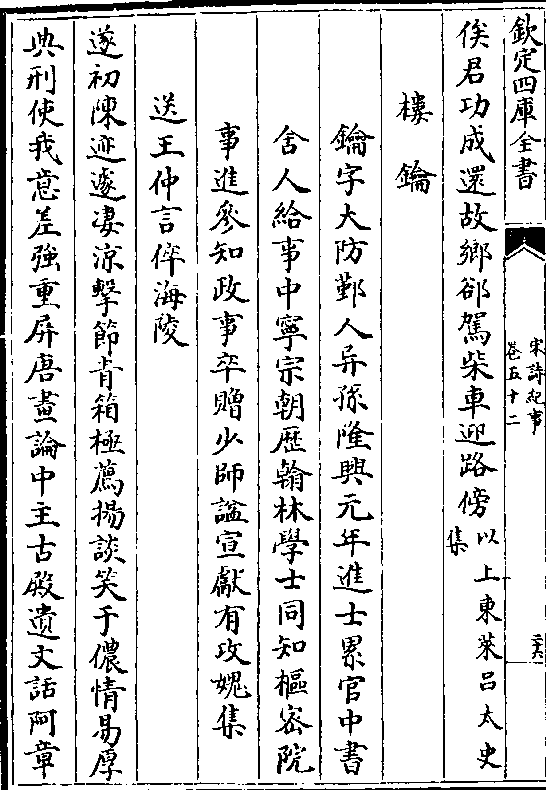 欽定四庫全書
宋詩紀事
卷五十二
二六
俟君功成還故鄉郤駕柴車迎路傍以上東萊吕太史集
樓鑰
鑰字大防鄞人异孫隆興元年進士累官中書
舍人給事中寧宗朝歴翰林學士同知樞宻院
事進參知政事卒贈少師諡宣獻有攻媿集
送王仲言倅海陵
遂初陳迹遽凄涼擊節青箱極薦揚談笑于儂情易厚
典刑使我意差強重屏唐畫論中主古殿遺文話阿章